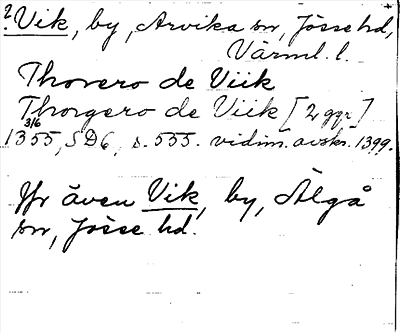 ? Vik, by, Arvika sn, Jösse hd,
Värml. l.
Thorero de Viik
Thorgero de Viik [2 ggr]
1355 3/6, SD6, s. 555. vidim. avskr. 1399.
Jfr även Vik, by, Älgå
sn, Jösse hd.